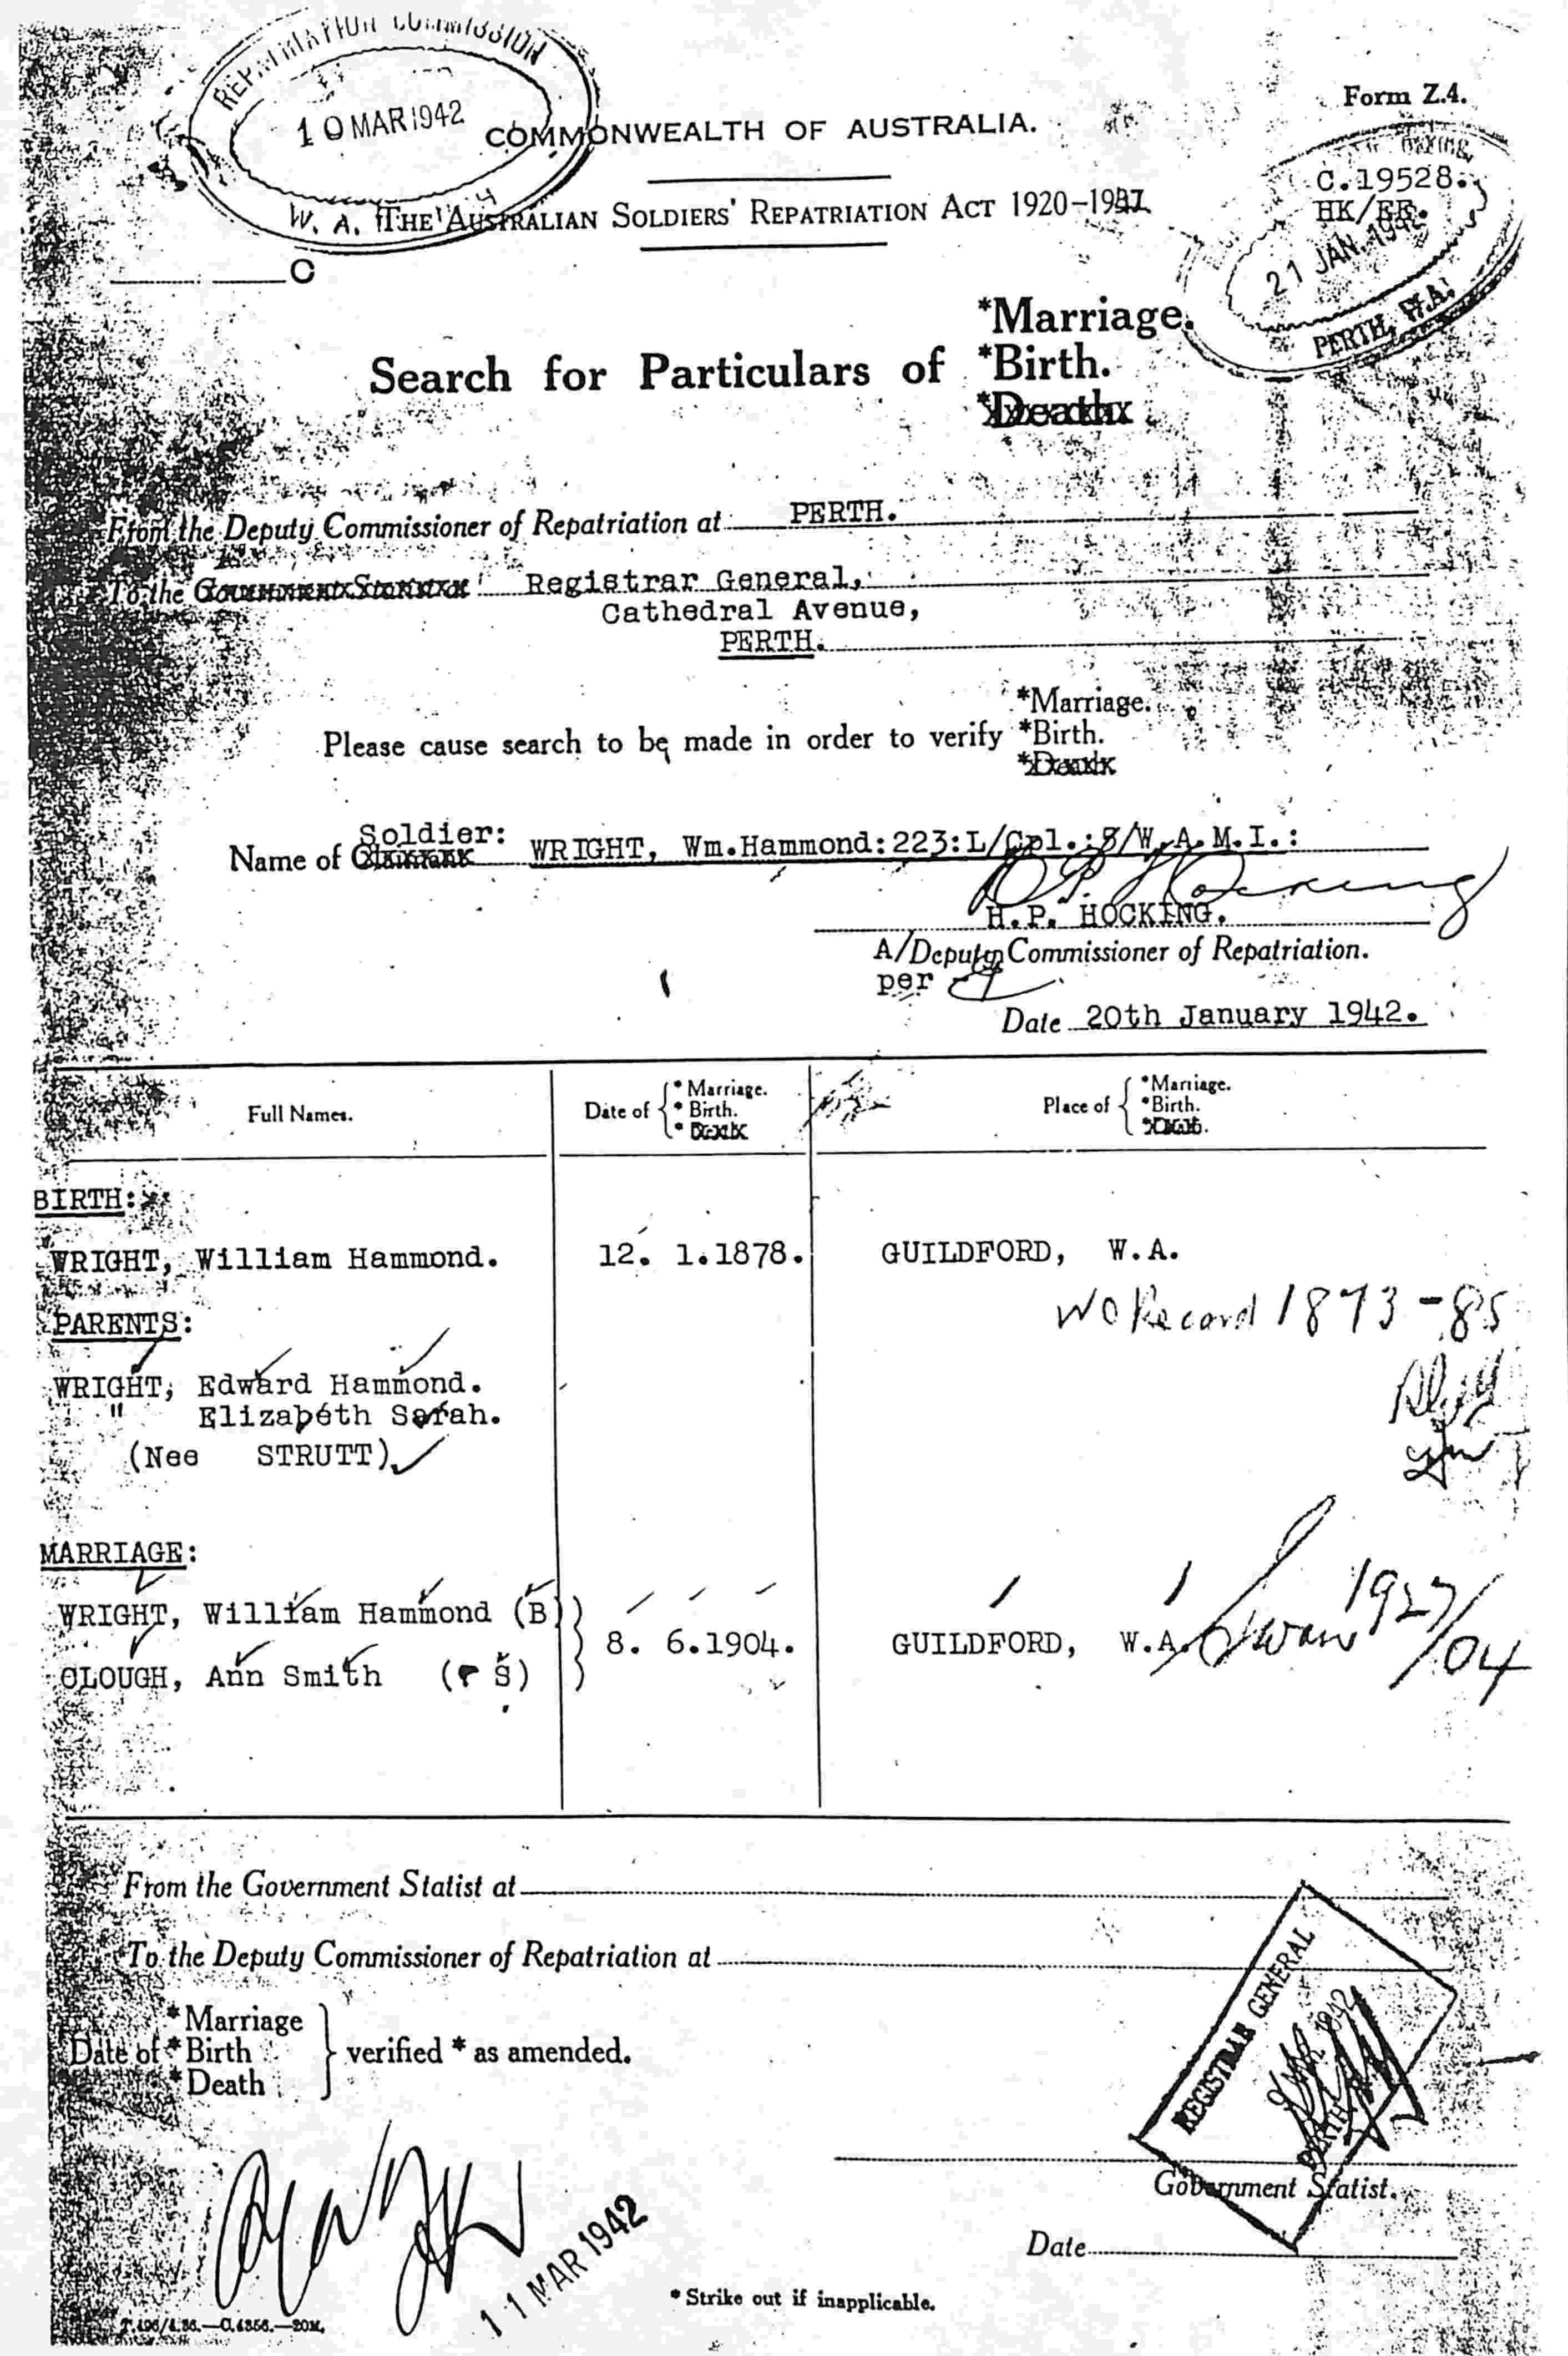 REPATRIATION COMMISSION
10 MAR 1942
W. A.
Form Z.4.
COMMONWEALTH OF AUSTRALIA.
C.19528.
HK/EE.
21 JAN. 1942
PERTH, W.A.
THE AUSTRALIAN SOLDIERS' REPATRIATION ACT 1920-1937
C
Search for Particulars of
*Marriage.
*Birth.
*Death
From the Deputy Commissioner of Repatriation at PERTH.
To the Government Statist Registrar General,
Cathedral Avenue,
PERTH.
Please cause search to be made in order to verify
*Marriage.
*Birth.
*Death
Soldier:
Name of WRIGHT, Wm.Hammond:223:L/Cpl.:8/W.A.M.I.:
H.P. Hocking
H.P. HOCKING.
A/Deputy Commissioner of Repatriation.
per
Date 20th January 1942.
Full Names.
Date of
* Marriage.
* Birth.
* Death
Place of
*Marriage.
*Birth.
*Death.
BIRTH:
WRIGHT, William Hammond. 12. 1.1878. GUILDFORD, W.A.
No Record 1873-85
PARENTS:
WRIGHT, Edward Hammond.
" Elizabeth Sarah.
(Nee STRUTT)
MARRIAGE:
WRIGHT, William Hammond (B)
8. 6.1904. GUILDFORD, W.A. Swan 1927/04
CLOUGH, Ann Smith ( S)
From the Government Statist at
To the Deputy Commissioner of Repatriation at
*Marriage
Date of *Birth verified * as amended.
*Death
REGISTRAR GENERAL
9 MAR 1942
PERTH
Government Statist.
Date
11 MAR 1942
* Strike out if inapplicable.
T.496/4.36.—C.4356.—20M.